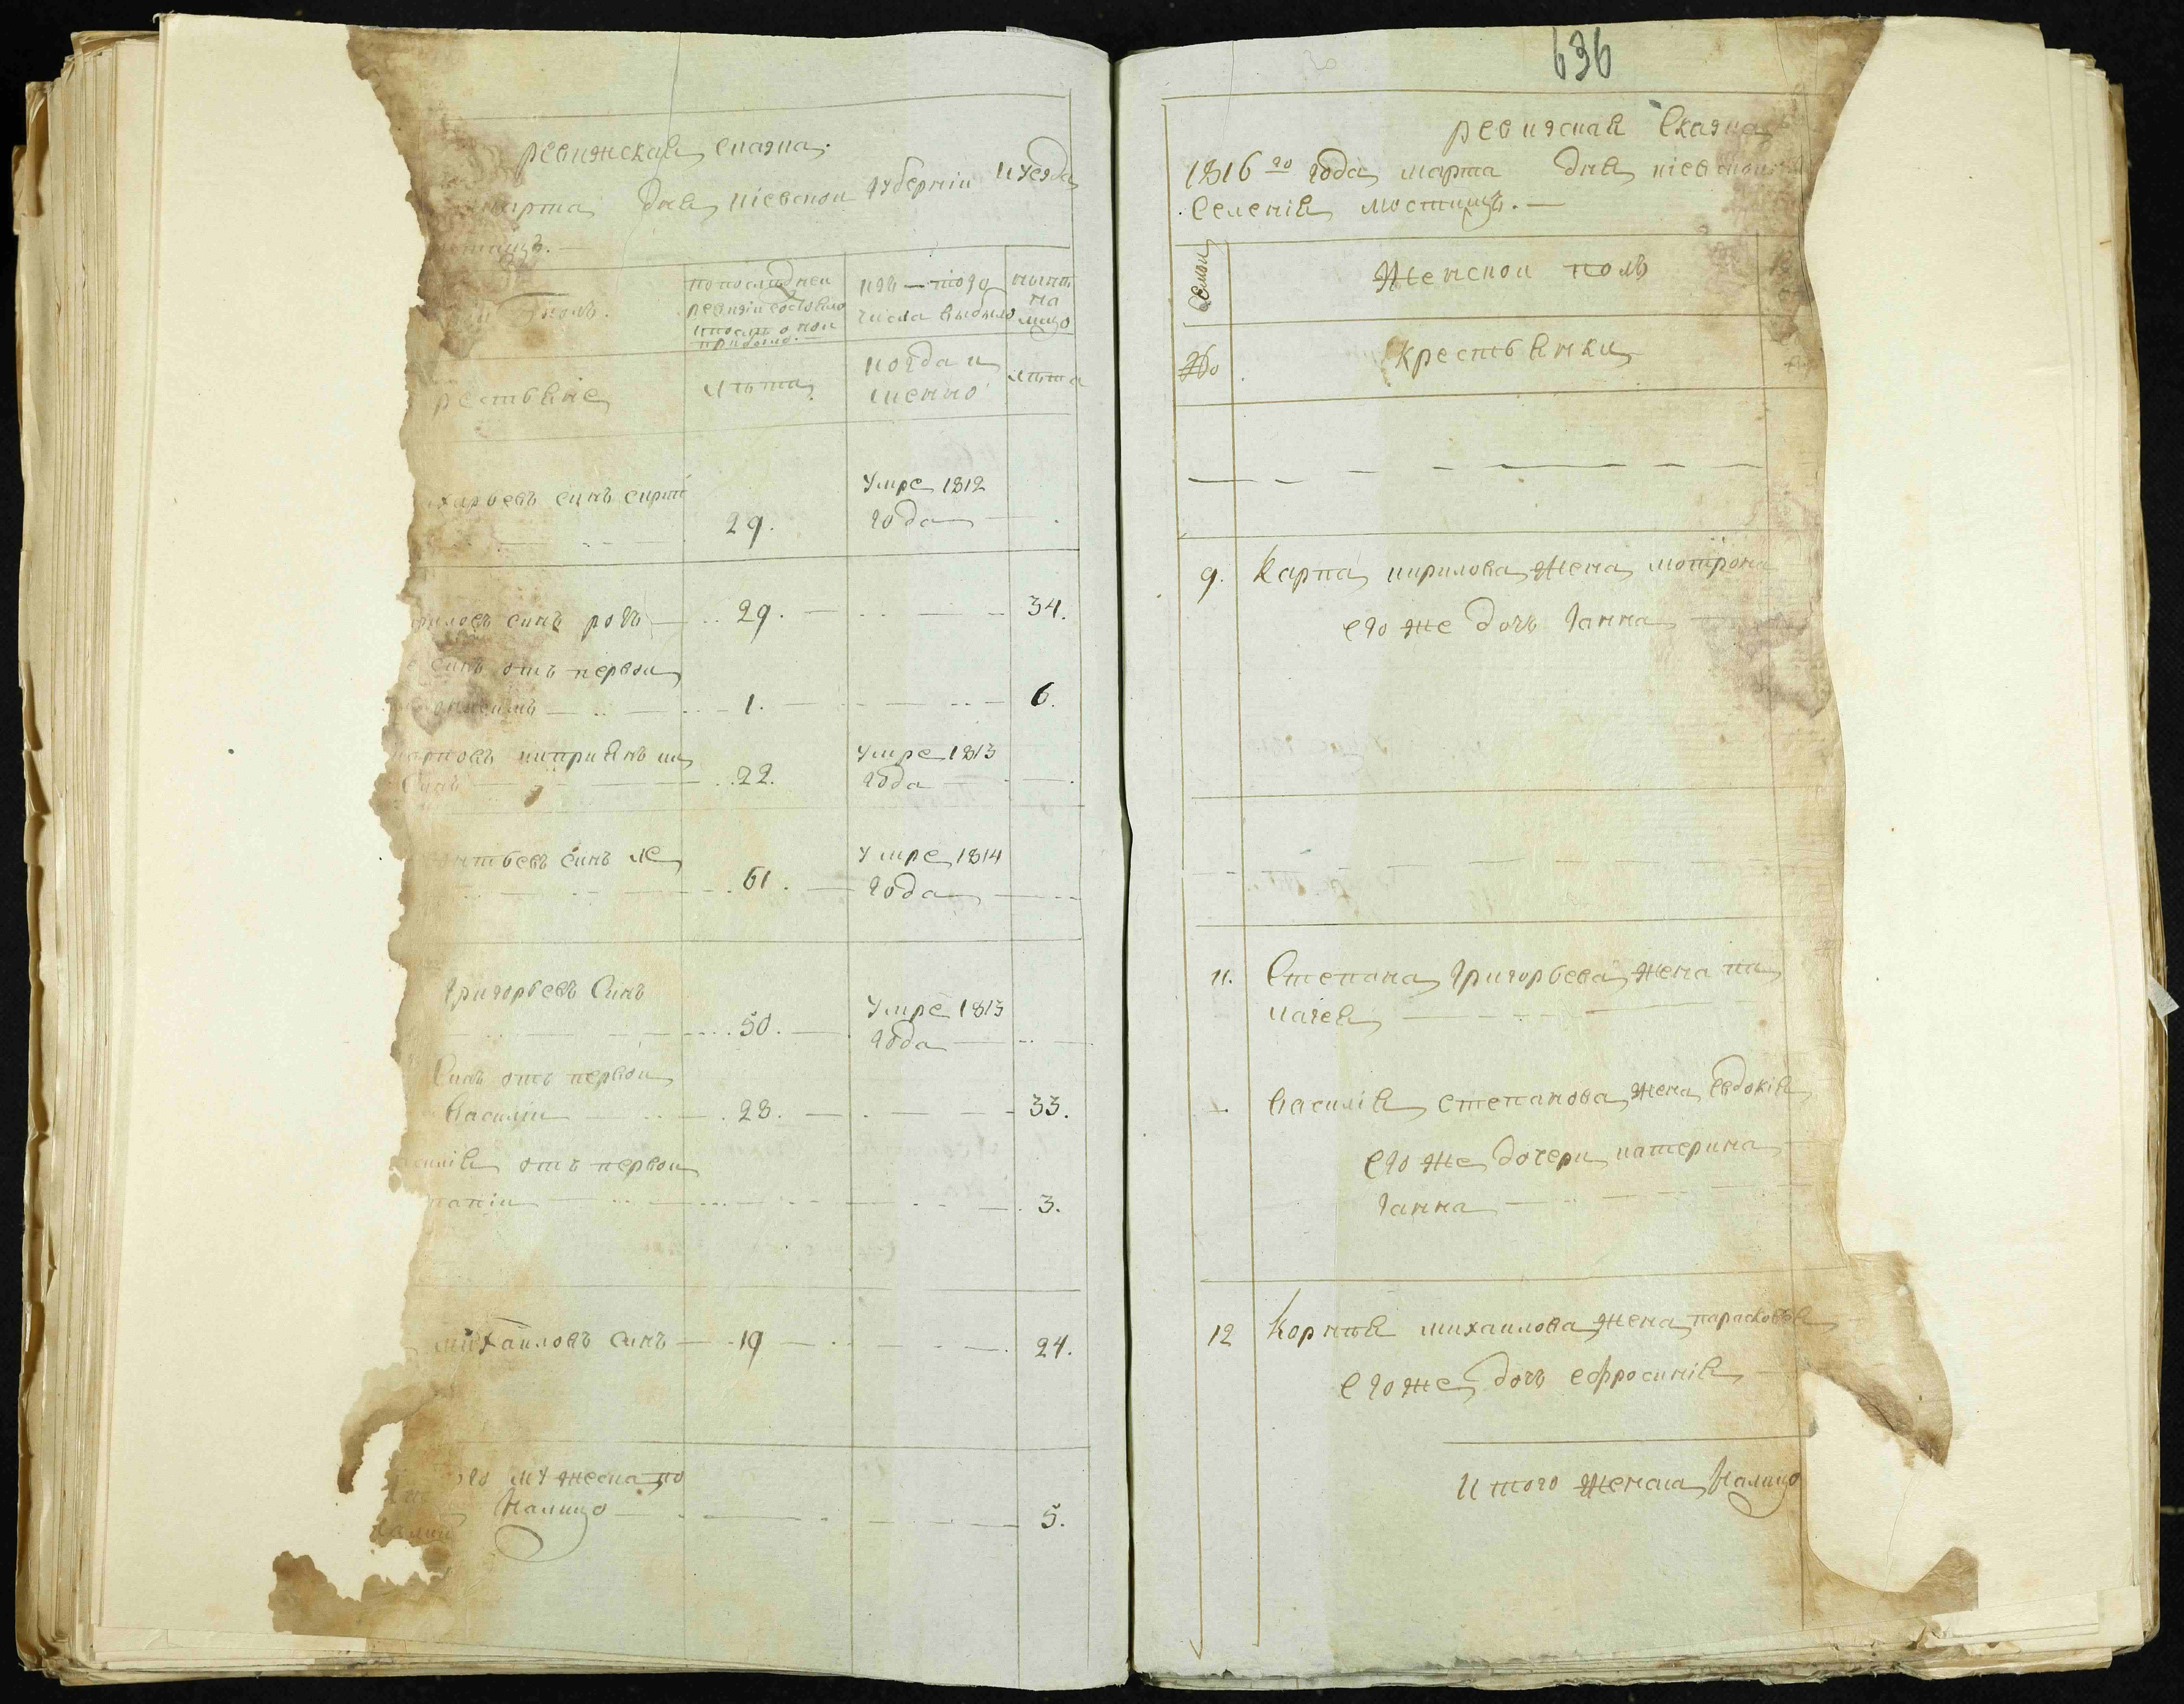 ревижская сказка.
марта дня кіевской губерніи и уезда
полъ.
по последней
ревизіи состояло
и после оной
прибыло.
изъ того
числа выбыло
ныне
на
лицо
лета
когда и
менно
лета
рестьяне
харьевъ синъ сирот
29.
Умре 1812
года
риловъ синъ
29.
34.
синъ отъ первой
1.
6.
карповъ киприянъ
Синъ
22.
Умре 1813
года
онтьевъ синъ ле
61.
Умре 1814
года
григорьевъ Синъ
50.
Умре 1813
года
Синъ отъ первой
Василій
28.
33.
силія отъ первой
3.
михайловъ синъ
19
24.
го мужеска по
Налицо
5.
636
ревизская Сказка
1816 го года марта дня кіевской
Селенія мостищъ.
Семьи
Женской полъ
№
крестьянки
9. Карпа кирилова жена мотрона
его же дочъ ганна
11. Степана григорьева жена пе
лагея
Василія степанова жена евдокія
его же дочери катерина
ганна
12 Корнея михаилова жена парасковья
его же дочъ ефросинія
И того женска Налицо